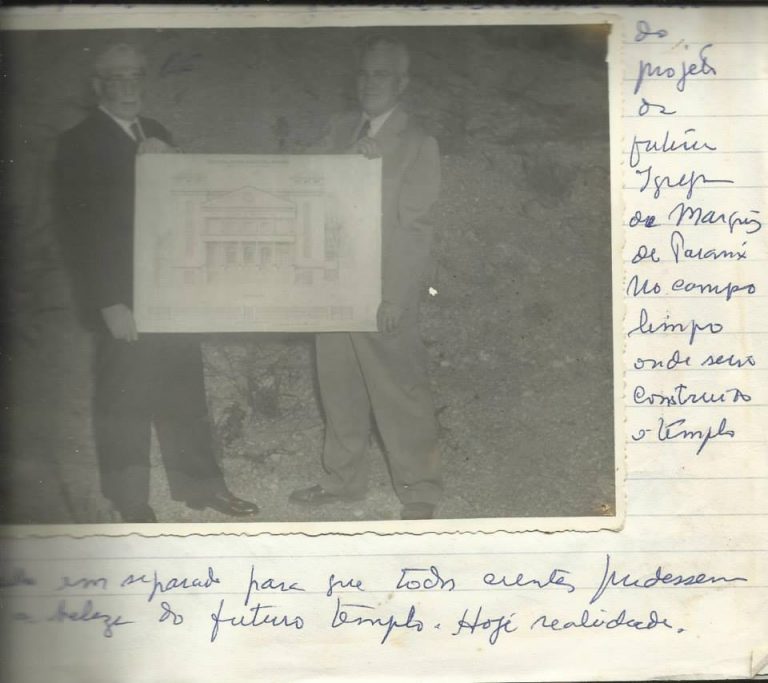 do
projeto
da
futura
Igreja
de Marquês
de Paraná
No campo
limpo
onde será
construido
o templo
em separado para que todos crentes pudessem
a beleza do futuro templo. Hoje realidade.